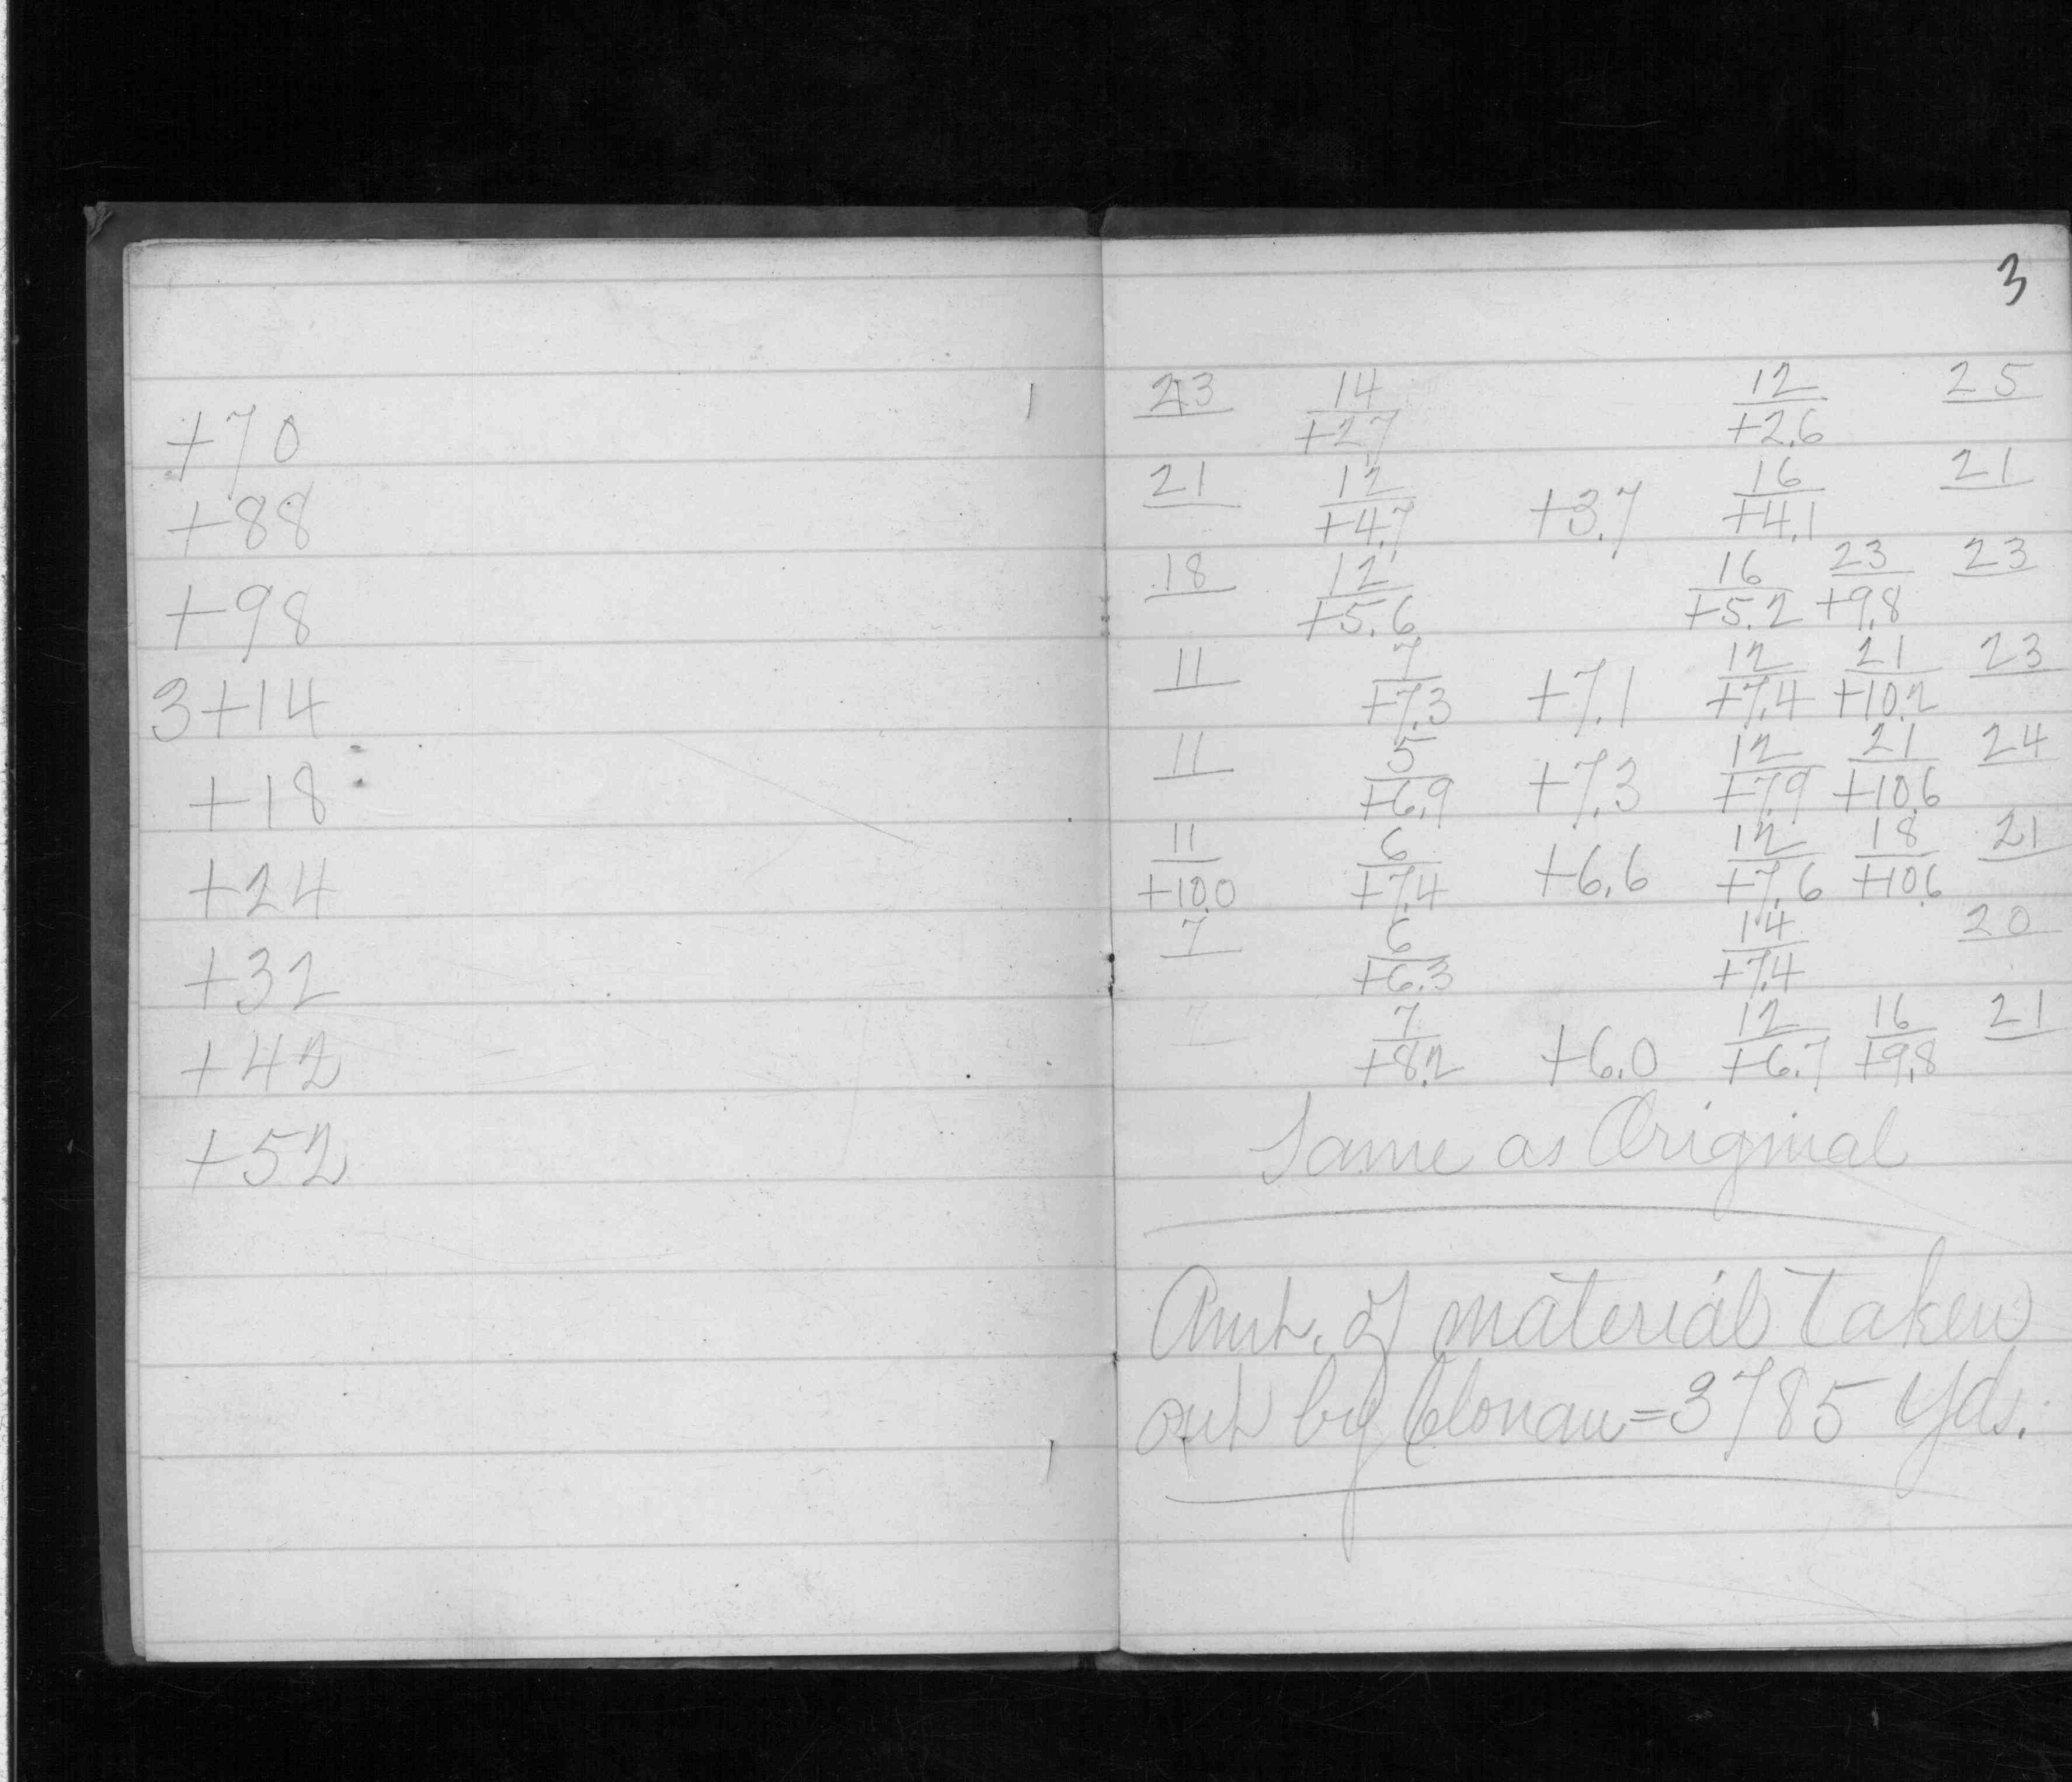 3
+70
+88
+98
3+14
+18
+24
+32
+42
+52
23 14 12 25
+2.7 +2.6
21 12 +3.7 16 21
+4.7 +4.1
18 12 16 23 23
+5.6 +5.2 +9.8
11 7 +7.1 12 21 23
+7.3 +7.4 +10.2
11 5 +7.3 12 21 24
+6.9 +7.9 +10.6
11 6 +6.6 12 18 21
+10.0 +7.4 +7.6 +10.6
7 6 14 20
+6.3 +7.4
7 7 +6.0 12 16 21
+8.2 +6.7 +9.8
Same as Original
Amt. of material taken
out by = 3785 Yds.